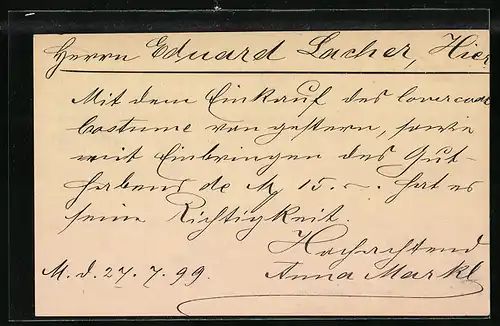 Herrn Eduard Lacher, Hier
Mit dem Einkauf des lovercoat
Costume von gestern, sowie
mit Einbringen des Gut-
habens de M 15.-. hat es
seine Richtigkeit.
Hochachtend
M. d. 27. 7. 99. Anna Markl